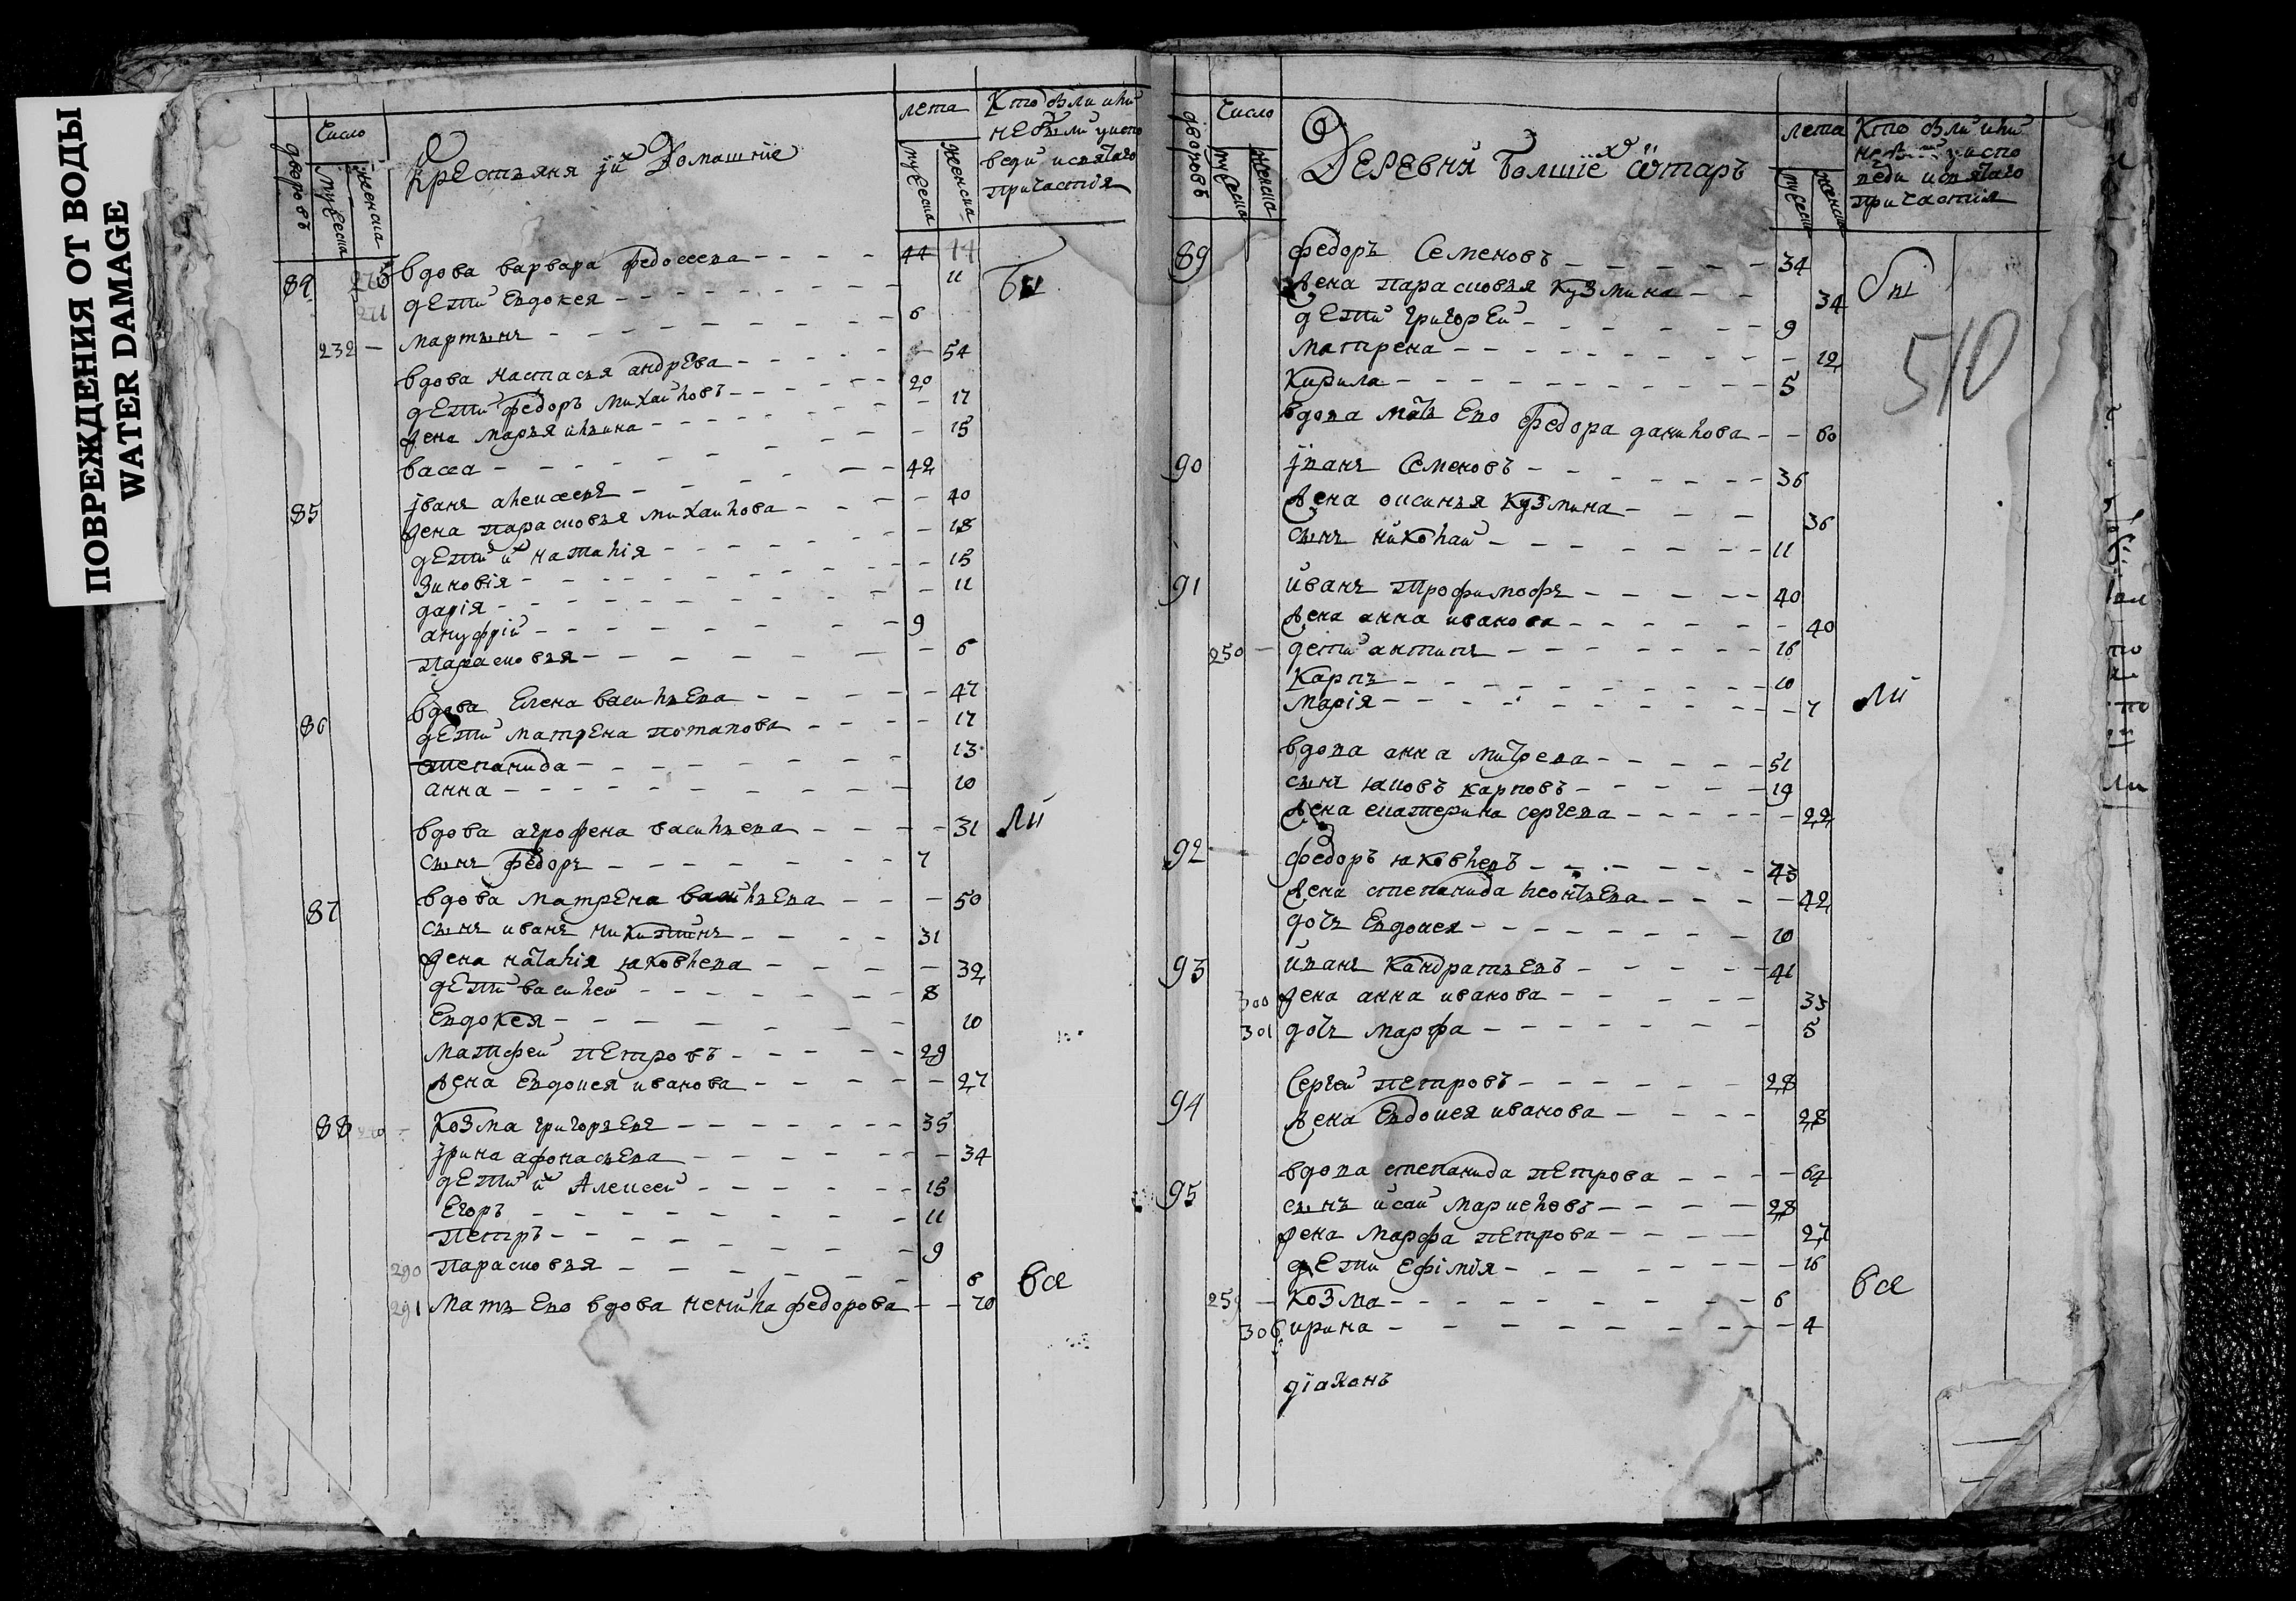 ПОВРЕЖДЕНИЯ ОТ ВОДЫ
WATER DAMAGE
дворовъ
Число
мужеска
женска
Крестьяня їи Домашнїе
лета
мужеска
женска
Кто были или
не были уиспо
веди исвятаго
причастія
84 вдова варвара федосеева 44 44
211 дети Евдокея 11 Бы
232 мартынъ 6
вдова настасья андрева 54
дети федоръ михаиловъ 20
жена марья ильина 17
васса 15
85 јванъ алексеевъ 42
жена парасковья михаилова 40
дети и наталія 18
Зиновія 15
дарія 11
ануфрій 9
парасковья 6
86 вдова Елена васильева 47
дети матрена потапова 17
степанида 13
анна 10
вдова агрофена васильева 31 ли
сынъ федоръ 7
87 вдова матрена васильева 50
сынъ иванъ никитинъ 31
жена наталія яковлева 32
дети василей 8
Евдокея 10
матфей петровъ 29
жена Евдокея иванова 27
88 Козма григорьевъ 35
јрина афонасьева 34
дети и Алексей 15
Егоръ 11
Петръ 9
290 парасковья 6 вси
291 мать Ево вдова ненила федорова 70
дворовъ
Число
мужеска
женска
Деревни Болшїехъ отаръ
лета
мужеска
женска
Кто были или
не были уиспо
веди исвятаго
причастія
89 федоръ Семеновъ 34
жена парасковья Кузмина 34 бы
дети григорей 9
матрена 12
510
Кирила 5
вдова мать Ево федора данилова 60
90 јванъ Семеновъ 36
жена оксинья Кузмина 36
сынъ николай 11
91 иванъ Трофимофъ 40
жена анна иванова 40
250 дети антипъ 16
Карпъ 10
марія 7 ли
вдова анна митрева 51
сынъ яковъ карповъ 19
жена екатерина сергева 22
92 федоръ яковлевъ 43
жена степанида леонтьева 42
дочь Евдокея 10
93 иванъ Кандратьевъ 41
300 жена анна иванова 35
301 дочь марфа 5
94 Сергей петровъ 28
жена Евдокея иванова 28
95 вдова степанида петрова 64
сынъ исай маркеловъ 28
жена марфа петрова 27
дети Ефімія 16
259 козма 6 вси
306 ирина 4
діаконъ